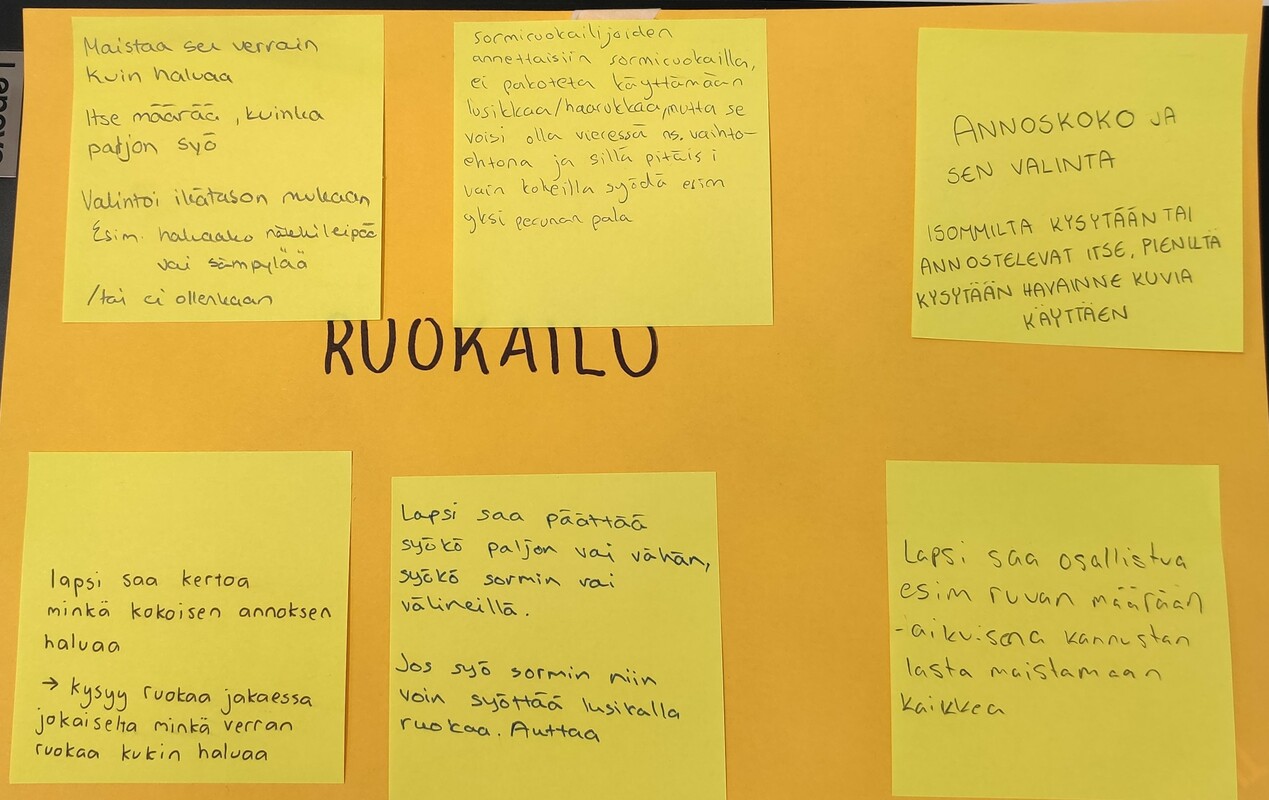 Maistaa sen verrain
kuin haluaa
Itse määrää, kuinka
paljon syö
Valintoi ikätason mukaan
Esim. haluaako näkkileipää
vai sämpylää
/tai ei ollenkaan
sormiruokailijoiden
annettaisiin sormiruokailla,
ei pakoteta käyttämään
lusikkaa/haarukkaa, mutta se
voisi olla vieressä ns. vaihto-
ehtona ja sillä pitäisi
vain kokeilla syödä esim
yksi perunan pala
ANNOSKOKO JA
SEN VALINTA
ISOMMILTA KYSYTÄÄN TAI
ANNOSTELEVAT ITSE, PIENILTÄ
KYSYTÄÄN HAVAINNE KUVIA
KÄYTTÄEN
RUOKAILU
lapsi saa kertoa
minkä kokoisen annoksen
haluaa
→ kysyy ruokaa jakaessa
jokaiselta minkä verran
ruokaa kukin haluaa
Lapsi saa päättää
syökö paljon vai vähän,
syökö sormin vai
välineillä.
Jos syö sormin niin
voin syöttää lusikalla
ruokaa. Auttaa
Lapsi saa osallistua
esim ruuan määrään
- aikuisena kannustan
lasta maistamaan
kaikkea